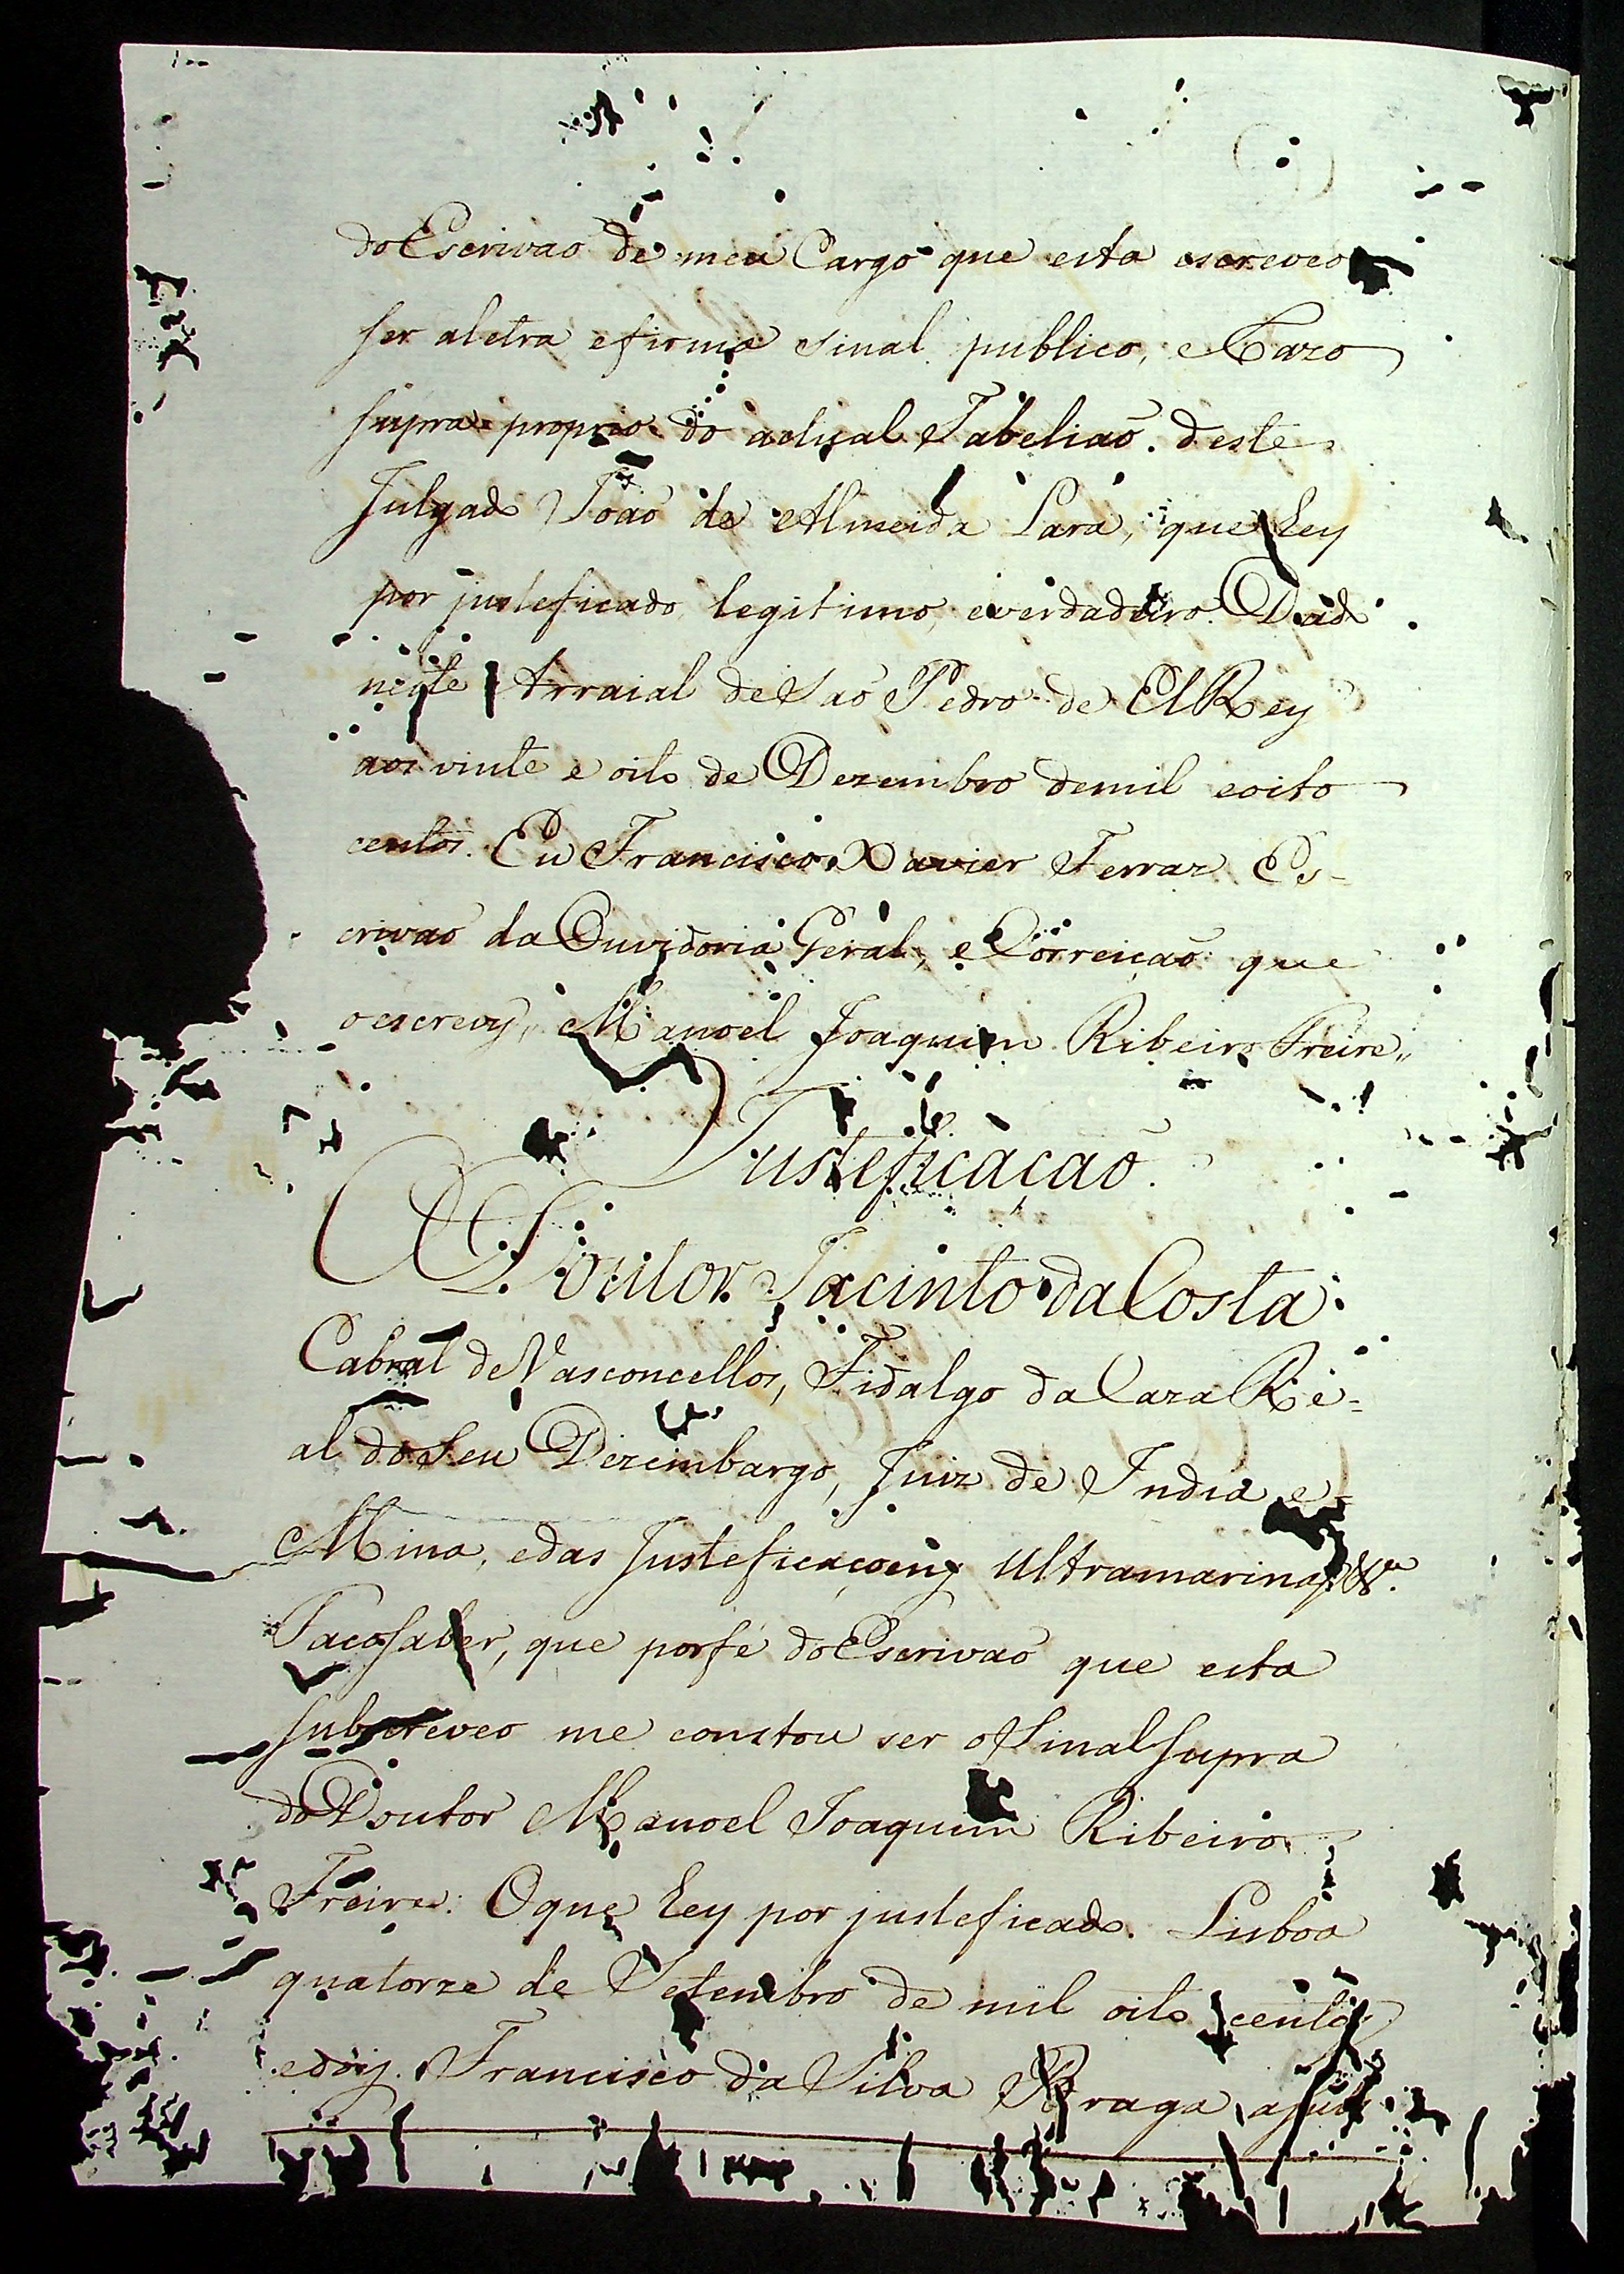 do Escrivaõ de meu Cargo que esta escreveo
ser aletra efirma sinal publico, eRazo
supra proprio do actual Tabeliaõ deste
Julgado Joaõ de Almeida Lara, que hey
por justeficado legitimo, everdadeiro. Dada
neste Arraial deSaõ Pedro de ElRey
aos vinte e oito de Dezembro demil eoito
centos. Eu Francisco Xavier Ferraz Es-
crivaõ da Ouvidoria Geral, eCorreiçaõ que
oescrevy, Manoel Joaquim Ribeiro Freire,,
Justeficaçaõ.
O Doutor Jacinto da Costa
Cabral deVasconcellos, Fidalgo da Caza Re=
al do Seu Dezembargo, Juiz de India e=
Mina, edas Justeficaçoens Ultramarinas &ª.
Faço saber, que porfé do Escrivaõ que esta
subscreveo me constou ser oSinal supra
do Doutor Manoel Joaquim Ribeiro
Freire: Oque hey por justeficado. Lisboa
quatorze de Setembro de mil oito centos
edois. Francisco da Silva Braga,